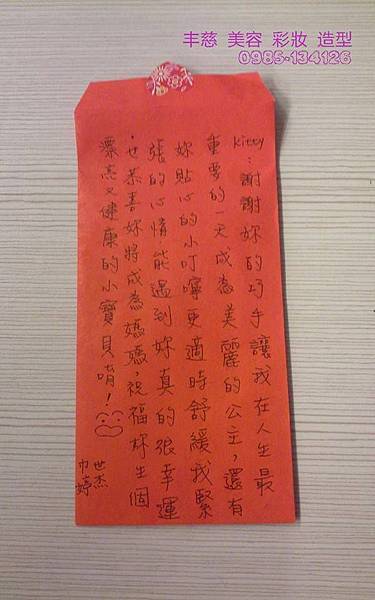 丰慈 美容 彩妝 造型
0985-134126
Kitty：謝謝妳的巧手讓我在人生最
重要的一天成為美麗的公主，還有
妳貼心的小叮嚀更適時舒緩我緊
張的心情能遇到妳真的很幸運
，也恭喜妳將成為媽媽，祝福妳生個
漂亮又健康的小寶貝唷！
世杰
巾婷